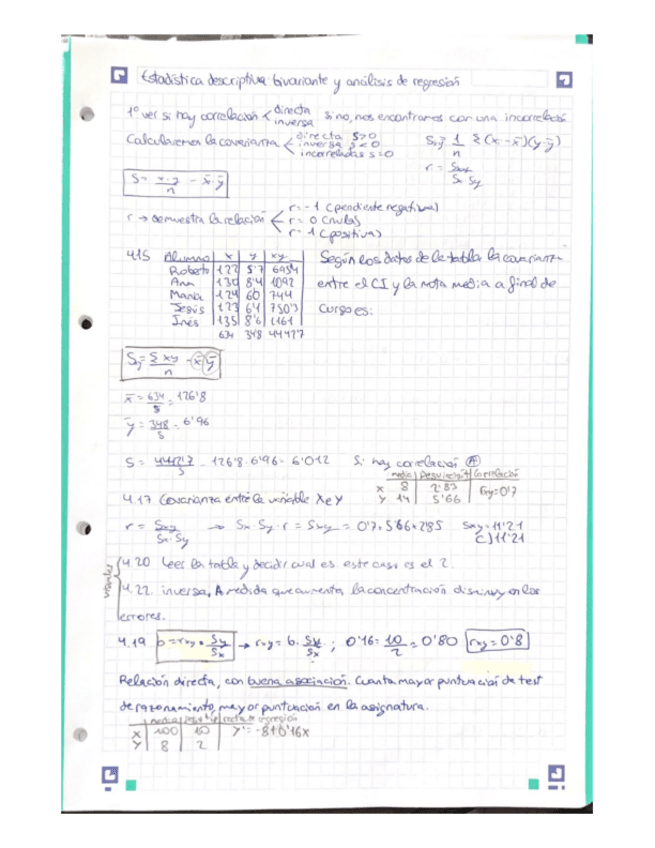 Estadística descriptiva bivariante y análisis de regresión
1º ver si hay correlación < directa inversa si no, nos encontramos con una incorrelación
Calcularemos la covarianza < directa S>0 inversa S<0 incorreladas s=0
Sxy = 1/n Σ(x-x̄)(y-ȳ)
r = Sxy / Sx·Sy
S = x·y/n - x̄·ȳ
r → demuestra la relación < r=-1 (pendiente negativa) r=0 (nula) r=1 (positiva)
4.15 Alumno | x | y | xy
Roberto | 122 | 5'7 |
Ana | 130 | 8'4 | 1092
María | 124 | 60 | 744
Jesús | 123 | 6'1 | 750'3
Inés | 135 | 8'6 | 1161
634 348 4442'7
Según los datos de la tabla la covarianza
entre el CI y la nota media a final de
curso es:
Sxy = Σxy/n - x̄ ȳ
x̄ = 634/5 = 126'8
ȳ = 348/5 = 6'96
S = 4442'7/5 - 126'8·6'96 = 6'012 Si hay correlación (A)
media | Desviación t | Correlación
x 8 | 2'83 | rxy=0'7
y 14 | 5'66
4.17 Covarianza entre la variable X e Y
r = Sxy / Sx·Sy → Sx·Sy·r = Sxy = 0'7·5'66·2'85 Sxy=11'21
C) 11'21
4.20 Leer la tabla y decidir cual es este caso es el 2.
4.22 inversa, A medida que aumenta la concentración disminuyen los
errores.
4.19 b = rxy · Sy/Sx → rxy = b· Sy/Sx ; 0'16· 10/2 = 0'80 rxy=0'8
Relación directa, con buena asociación. Cuanta mayor puntuación de test
de razonamiento, mayor puntuación en la asignatura.
media | | recta de regresión
X | 100 | 10 | y'=-8+0'16x
Y | 8 | 2